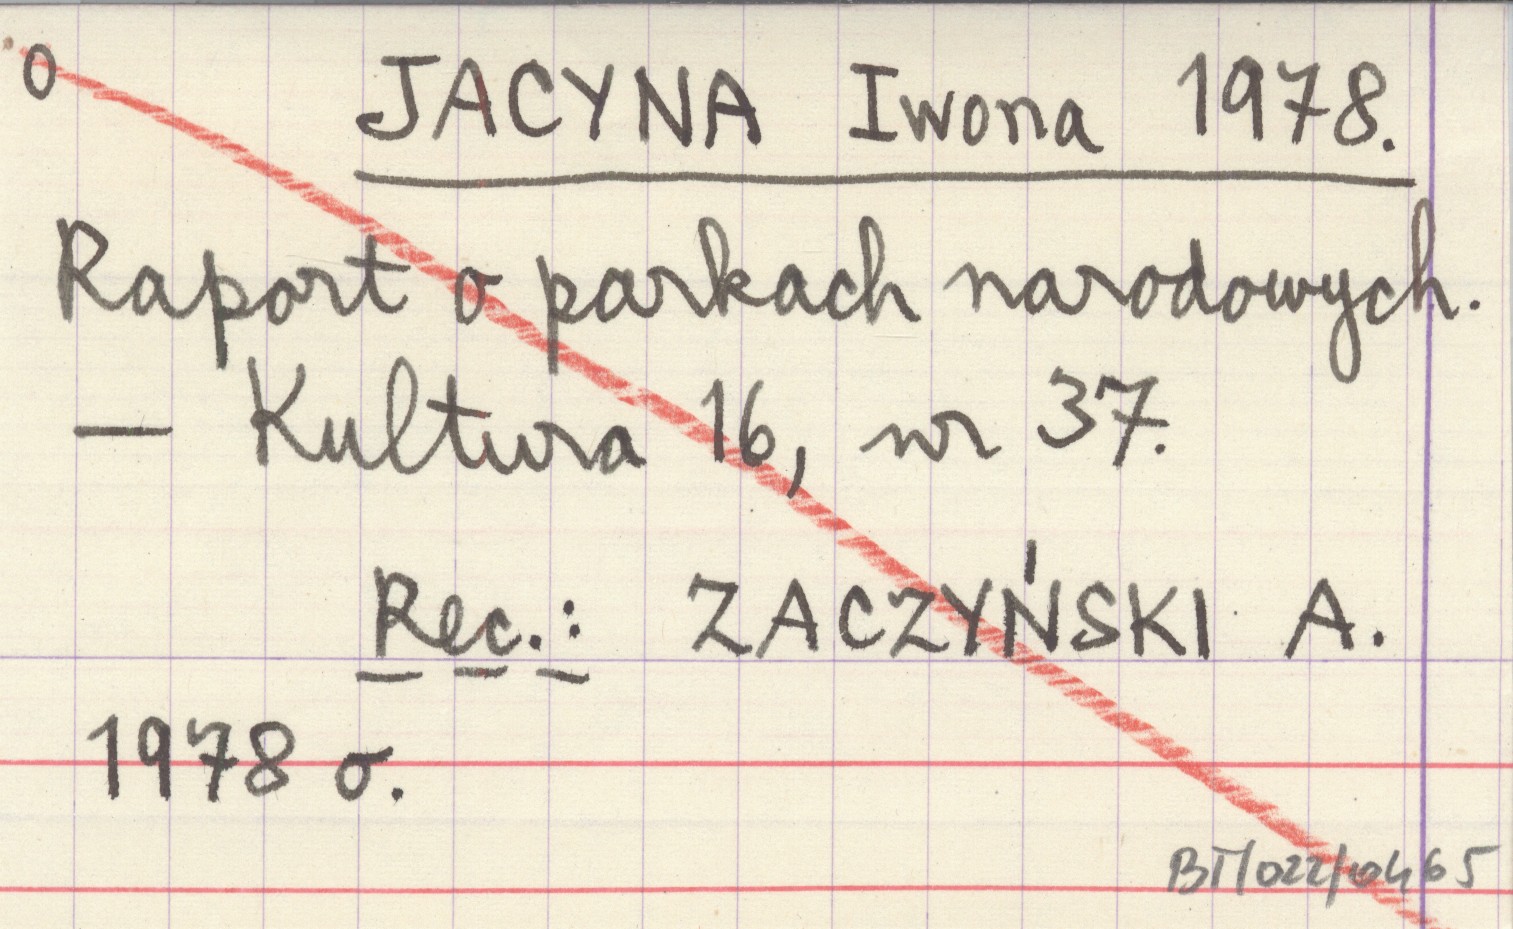 o JACYNA Iwona 1978.
Raport o parkach narodowych.
— Kultura 16, nr 37.
Rec.: ZACZYŃSKI A.
1978 o.
BT/022/0465